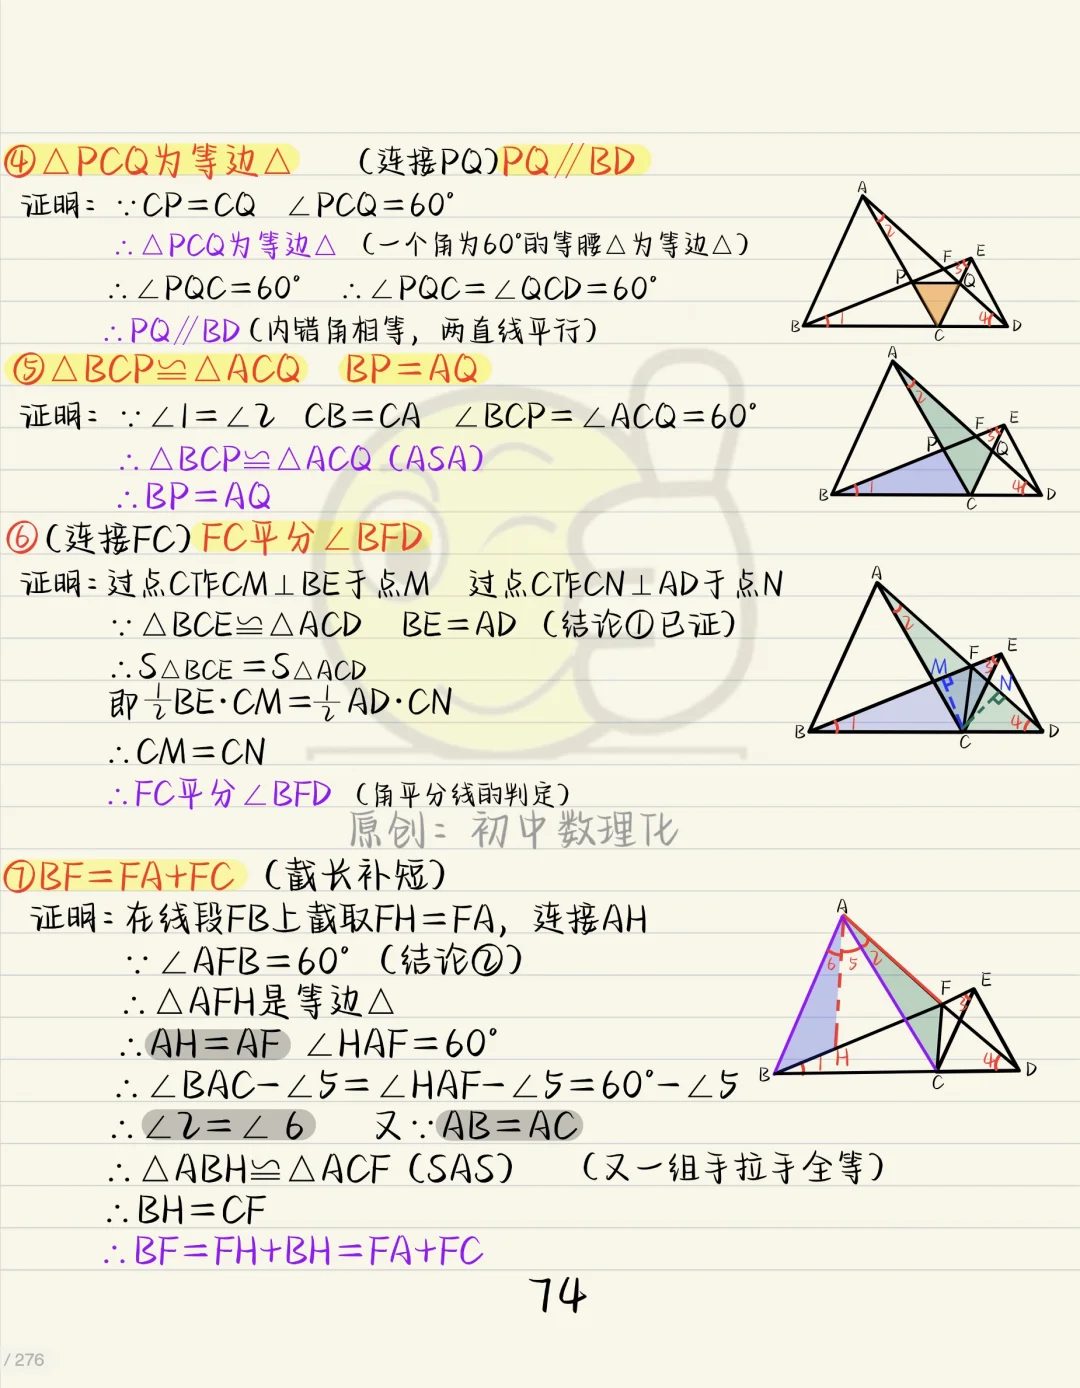 ④△PCQ为等边△ (连接PQ)PQ∥BD
证明: ∵CP=CQ ∠PCQ=60°
∴△PCQ为等边△ (一个角为60°的等腰△为等边△)
∴∠PQC=60° ∴∠PQC=∠QCD=60°
∴PQ∥BD(内错角相等, 两直线平行)
A
2
F E
3
P Q
B 1 C 4 D
⑤△BCP≌△ACQ BP=AQ
证明: ∵∠1=∠2 CB=CA ∠BCP=∠ACQ=60°
∴△BCP≌△ACQ(ASA)
∴BP=AQ
A
2
F E
3
P Q
B 1 C 4 D
⑥(连接FC)FC平分∠BFD
证明:过点C作CM⊥BE于点M 过点C作CN⊥AD于点N
∵△BCE≌△ACD BE=AD (结论①已证)
∴S△BCE=S△ACD
即½BE·CM=½AD·CN
∴CM=CN
∴FC平分∠BFD (角平分线的判定)
A
2
F E
3
M N
B 1 C 4 D
原创: 初中数理化
⑦BF=FA+FC (截长补短)
证明:在线段FB上截取FH=FA, 连接AH
∵∠AFB=60°(结论②)
∴△AFH是等边△
∴AH=AF ∠HAF=60°
∴∠BAC-∠5=∠HAF-∠5=60°-∠5
∴∠2=∠6 又∵AB=AC
∴△ABH≌△ACF(SAS) (又一组手拉手全等)
∴BH=CF
∴BF=FH+BH=FA+FC
A
6 5 2
F E
3
B 1 H C 4 D
74
/ 276